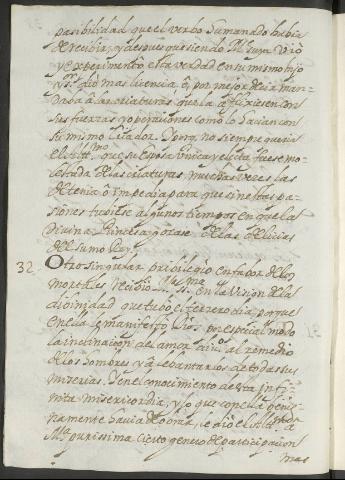 pasibilidad que el verbo humanado habia
de recibir, y despues quesiendo M.ª suya vio
y experimento esta verdad en su mismo hijo
y Sr. dio mas licencia ô, por mejor decir man-
daba â las criaturas que la afligiesen con
sus fuerzas y operaciones como lo hacian con
su mismo Criador. Pero, no siempre queria
el Altmo. que su Esposa unica y electa fuese mo-
lestada de las criaturas, muchas veces las
detenia ô impedia para que sin estas pa-
siones tubiese algunos tiempos en que la
Divina Princesa gozase de las delicias
del sumo Rey.
32. Otro singular privilegio en favor de los
mortales recibio Ma. sma. en la Vision de la
divinidad que tubo el tercero dia, porque
en ella le manifesto Dios por especial modo
la inclinacion del amor divino al remedio
de los hombres y â levantarlos de todas sus
miserias. Y en el conocimiento de esta infi-
nita misericordia, y lo que con ella benig-
namente havia de obrar, le dio el Altmo. â
Ma. purissima cierto genero de participacion
mas